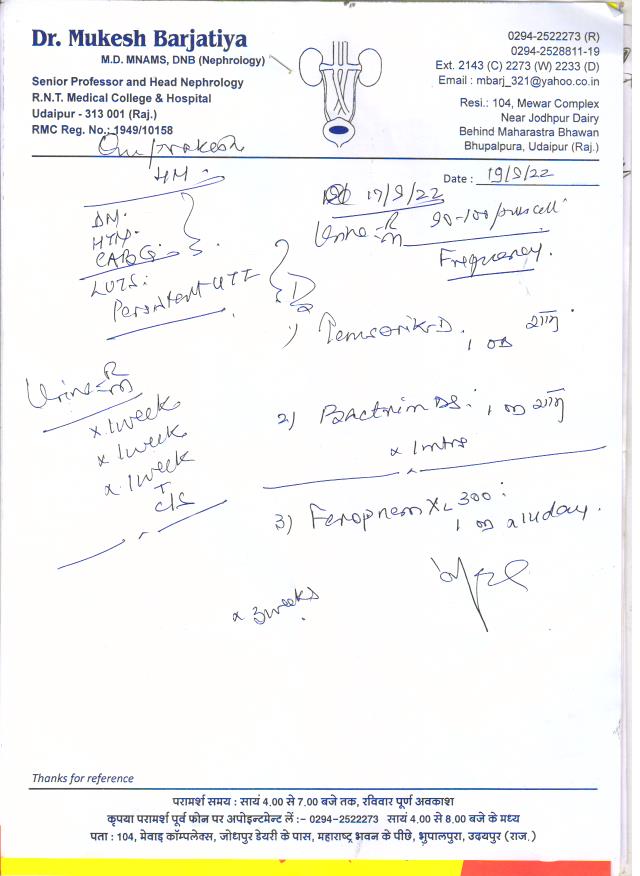 Dr. Mukesh Barjatiya
M.D. MNAMS, DNB (Nephrology)
Senior Professor and Head Nephrology
R.N.T. Medical College & Hospital
Udaipur - 313 001 (Raj.)
RMC Reg. No.: 1949/10158
0294-2522273 (R)
0294-2528811-19
Ext. 2143 (C) 2273 (W) 2233 (D)
Email : mbarj_321@yahoo.co.in
Resi.: 104, Mewar Complex
Near Jodhpur Dairy
Behind Maharastra Bhawan
Bhupalpura, Udaipur (Raj.)
Omprakash
Date : 19/9/22
DM.
HTN.
CABG.
LUTS:
Persistent UTI
17/9/22
Urine R/M 90-100/pus cell
Frequency.
1)
1 OD
2) Bactrim DS: 1
x 1
3) Faropnem XL 300:
1 x 14 day.
Urine R/M
x 1 week
x 1 week
x 1 week
C/S
x 3 weeks
Thanks for reference
परामर्श समय : सायं 4.00 से 7.00 बजे तक, रविवार पूर्ण अवकाश
कृपया परामर्श पूर्व फोन पर अपोइन्टमेन्ट लें :- 0294-2522273 सायं 4.00 से 8.00 बजे के मध्य
पता : 104, मेवाड़ कॉम्पलेक्स, जोधपुर डेयरी के पास, महाराष्ट्र भवन के पीछे, भुपालपुरा, उदयपुर (राज.)